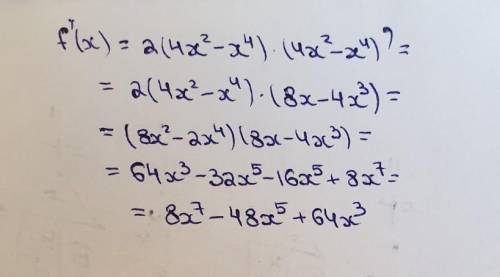 f'(x) = 2(4x² − x⁴) · (4x² − x⁴)' =
= 2(4x² − x⁴) · (8x − 4x³) =
= (8x² − 2x⁴)(8x − 4x³) =
= 64x³ − 32x⁵ − 16x⁵ + 8x⁷ =
= 8x⁷ − 48x⁵ + 64x³